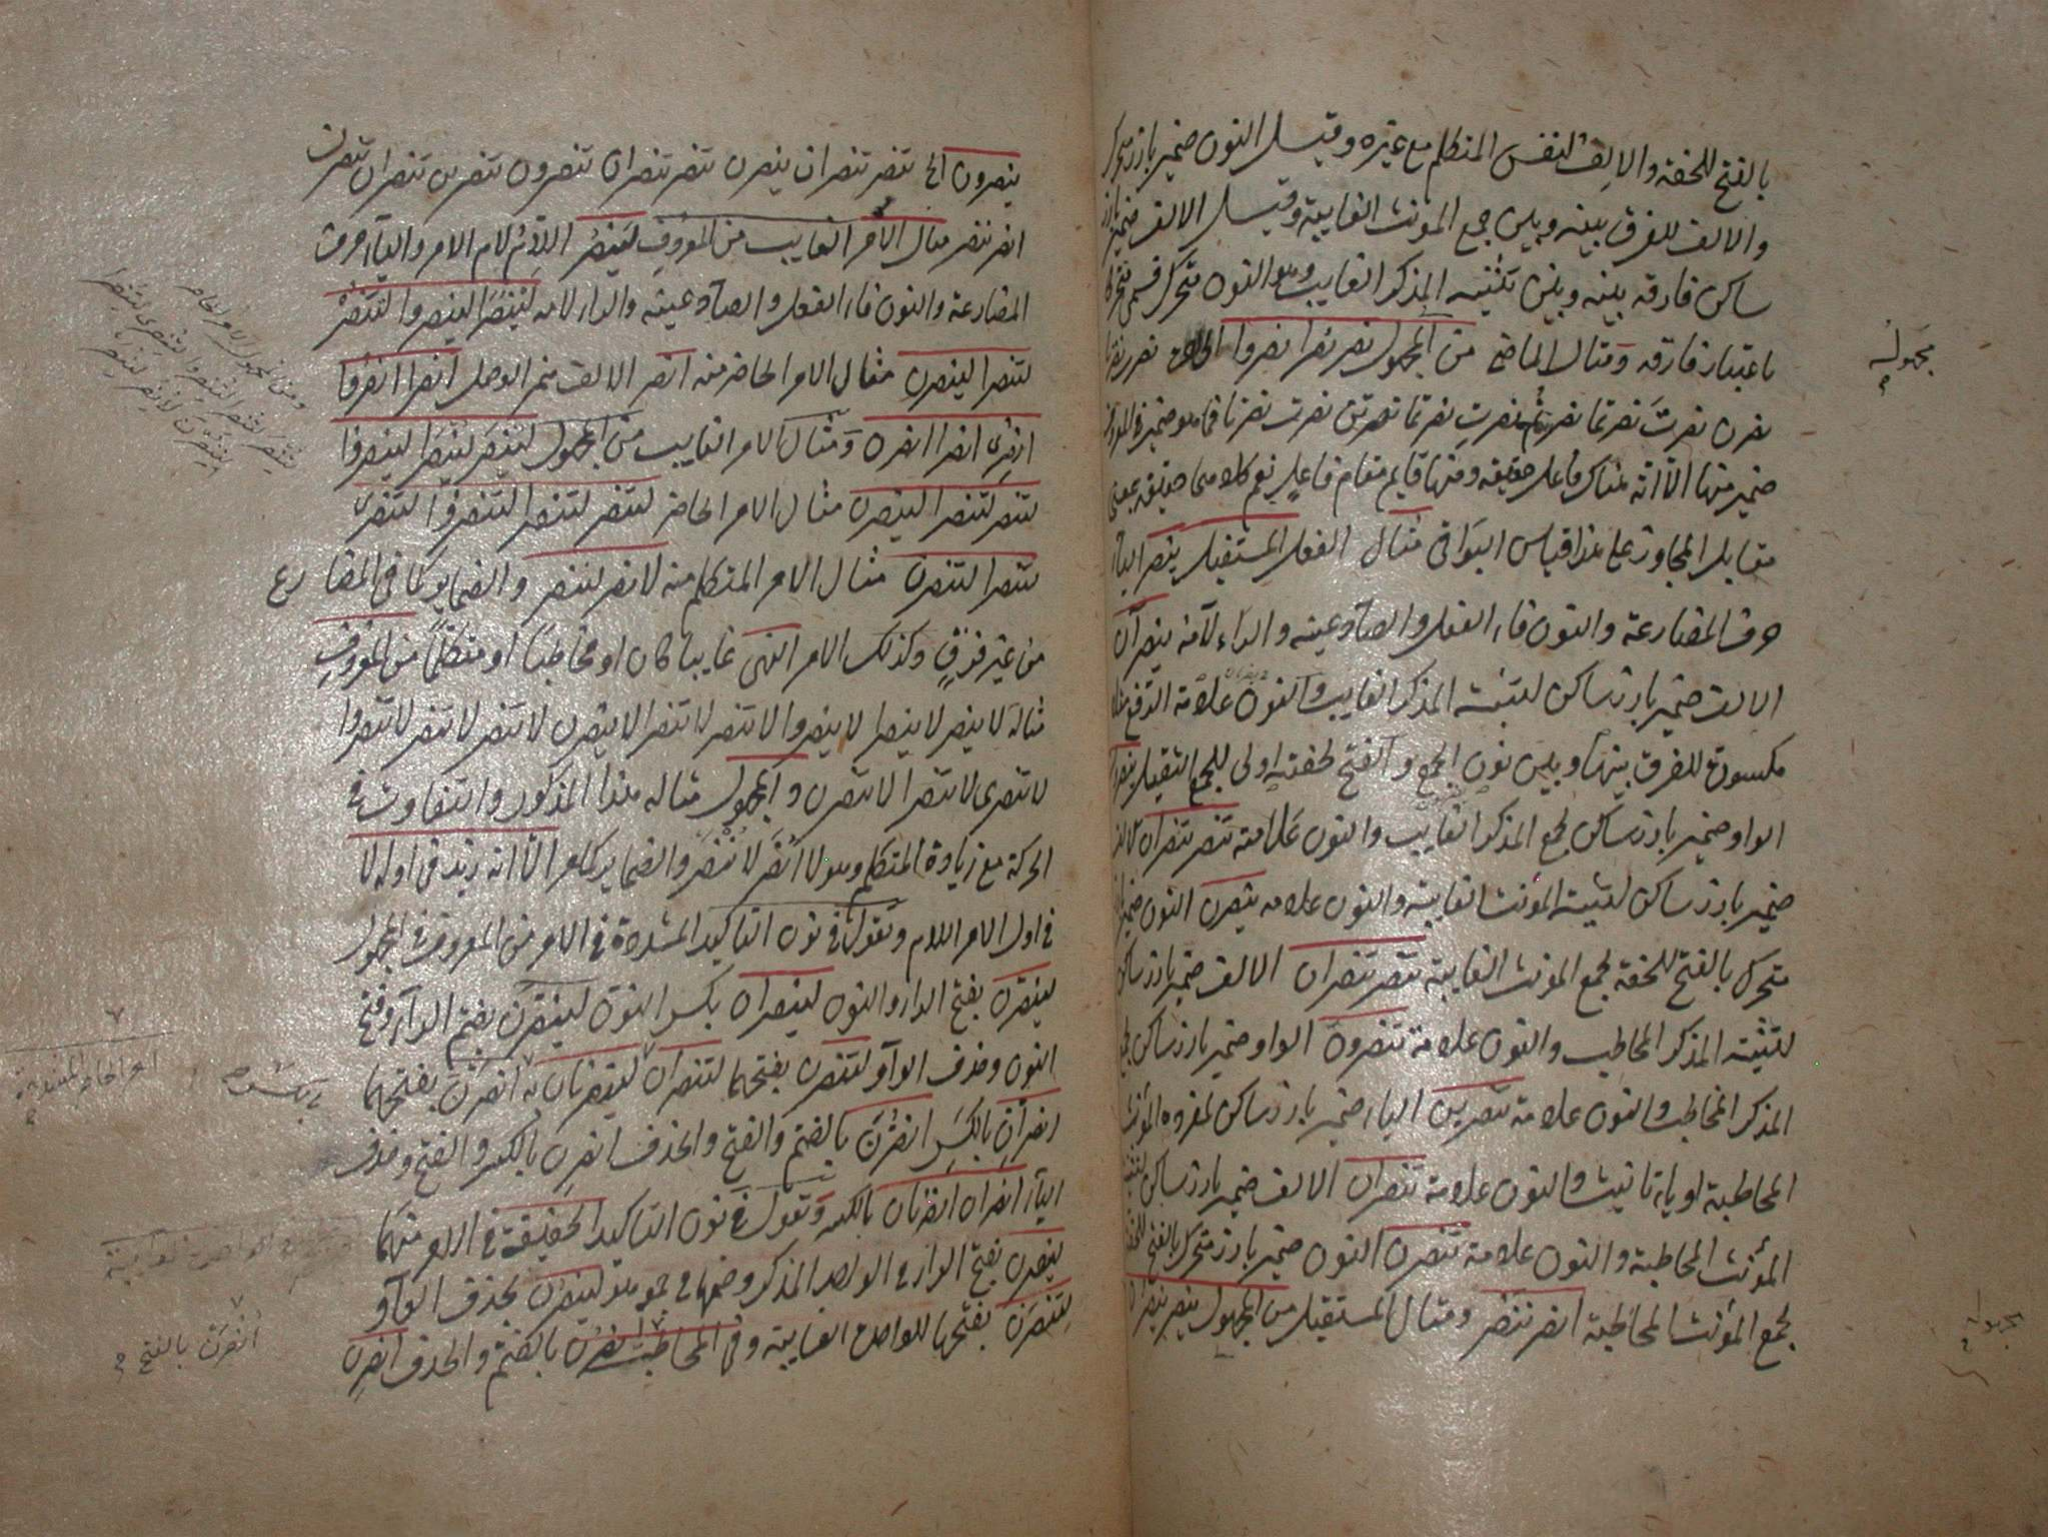 بالفتح للخفة والالف لنفس المتكلم مع غيره وقيل النون ضمير بارز
والالف للفرق بينه وبين جمع المؤنث الغايبة وقيل الالف ضمير بارز
ساكن فارقه بينه وبين تثنية المذكر الغايب والنون متحرك
باعتبار فارقه ومثال الماضى من المجهول نصر نصرا نصروا الخ نصرت نصرتا
نصرن نصرت نصرتما نصرتم نصرت نصرتما نصرتن نصرت نصرنا
ضمير منها الا انه هناك فاعل حقيقه ومنها قايم مقام فاعل نعم كلاهما حقيقه بمعنى
مقابل المجاز على هذا قياس البواقى مثال الفعل المستقبل ينصر الياء
حرف المضارعة والنون فاء الفعل والصاد عينه والراء لامه ينصران
الالف ضمير بارز ساكن لتثنية المذكر الغايب والنون علامة الرفع
مكسورة للفرق بينها وبين نون الجمع والفتح لخفته اولى للجمع الثقيل ينصرون
الواو ضمير بارز ساكن لجمع المذكر الغايب والنون علامة تنصر تنصران الالف
ضمير بارز ساكن لتثنية المؤنث الغايبة والنون علامه ينصرن النون ضمير
متحرك بالفتح للخفة لجمع المؤنث الغايبة تنصر تنصران الالف ضمير بارز ساكن
لتثنية المذكر المخاطب والنون علامة تنصرون الواو ضمير بارز ساكن لجمع
المذكر المخاطب والنون علامة تنصرين الياء ضمير بارز ساكن لمفرده المؤنث
المخاطبة او ياء تانيث والنون علامة تنصران الالف ضمير بارز ساكن لتثنية
المؤنث المخاطبة والنون علامة تنصرن النون ضمير بارز متحرك بالفتح للخفة
لجمع المؤنث المخاطبة انصر ننصر ومثال المستقبل من المجهول ينصر ينصران
مجهوله
مجهوله
ينصرون الخ تنصر تنصران ينصرن تنصر تنصران تنصرون تنصرين تنصران تنصرن
انصر ننصر مثال الامر الغايب من المعروف لينصر اللام لام الامر والياء حرف
المضارعة والنون فاء الفعل والصاد عينه والراء لامه لينصرا لينصروا لتنصر
لتنصرا لينصرن مثال الامر الحاضر منه انصر الالف همز الوصل انصرا انصروا
انصرى انصرا انصرن ومثال الامر الغايب من المجهول لينصر لينصرا لينصروا
لتنصر لتنصرا لينصرن مثال الامر الحاضر لتنصر لتنصرا لتنصروا لتنصرى
لتنصرا لتنصرن مثال الامر المتكلم منه لانصر لننصر والضماير كما فى المضارع
من غير فرق وكذلك الامر النهى غايبا كان او مخاطبا او متكلما من المعروف
مثاله لا ينصر لا ينصرا لا ينصروا لا تنصر لا تنصرا لا ينصرن لا تنصر لا تنصرا لا تنصروا
لا تنصرى لا تنصرا لا تنصرن والمجهول مثاله هذا المذكور والتفاوت فى
الحركة مع زيادة المتكلم وهو لا انصر لا ننصر والضماير كالامر الا انه زيد فى اوله لا
فى اول الامر اللام وتقول فى نون التاكيد المشددة فى الامر من المعروف والمجهول
لينصرن بفتح الراء والنون لينصران بكسر النون لينصرن بضم الراء وفتح
النون وحذف الواو لتنصرن بفتحهما لتنصران لينصرنان به انصرن بفتحهما
انصران بالكسر انصرن بالضم والفتح والحذف انصرن بالكسر والفتح وحذف
الياء انصران انصرنان بالكسر وتقول فى نون التاكيد الخفيفة فى الامر منهما
لينصرن بفتح الراء فى الواحد المذكر وضمها فى جمعه لينصرن بحذف الواو
لتنصرن بفتحها للواحدة الغايبة وفى المخاطب انصرن بالضم والحذف انصرن
ومن المجهول الامر الحاضر
بكسر النون
امر الحاضر
انصرن بالفتح